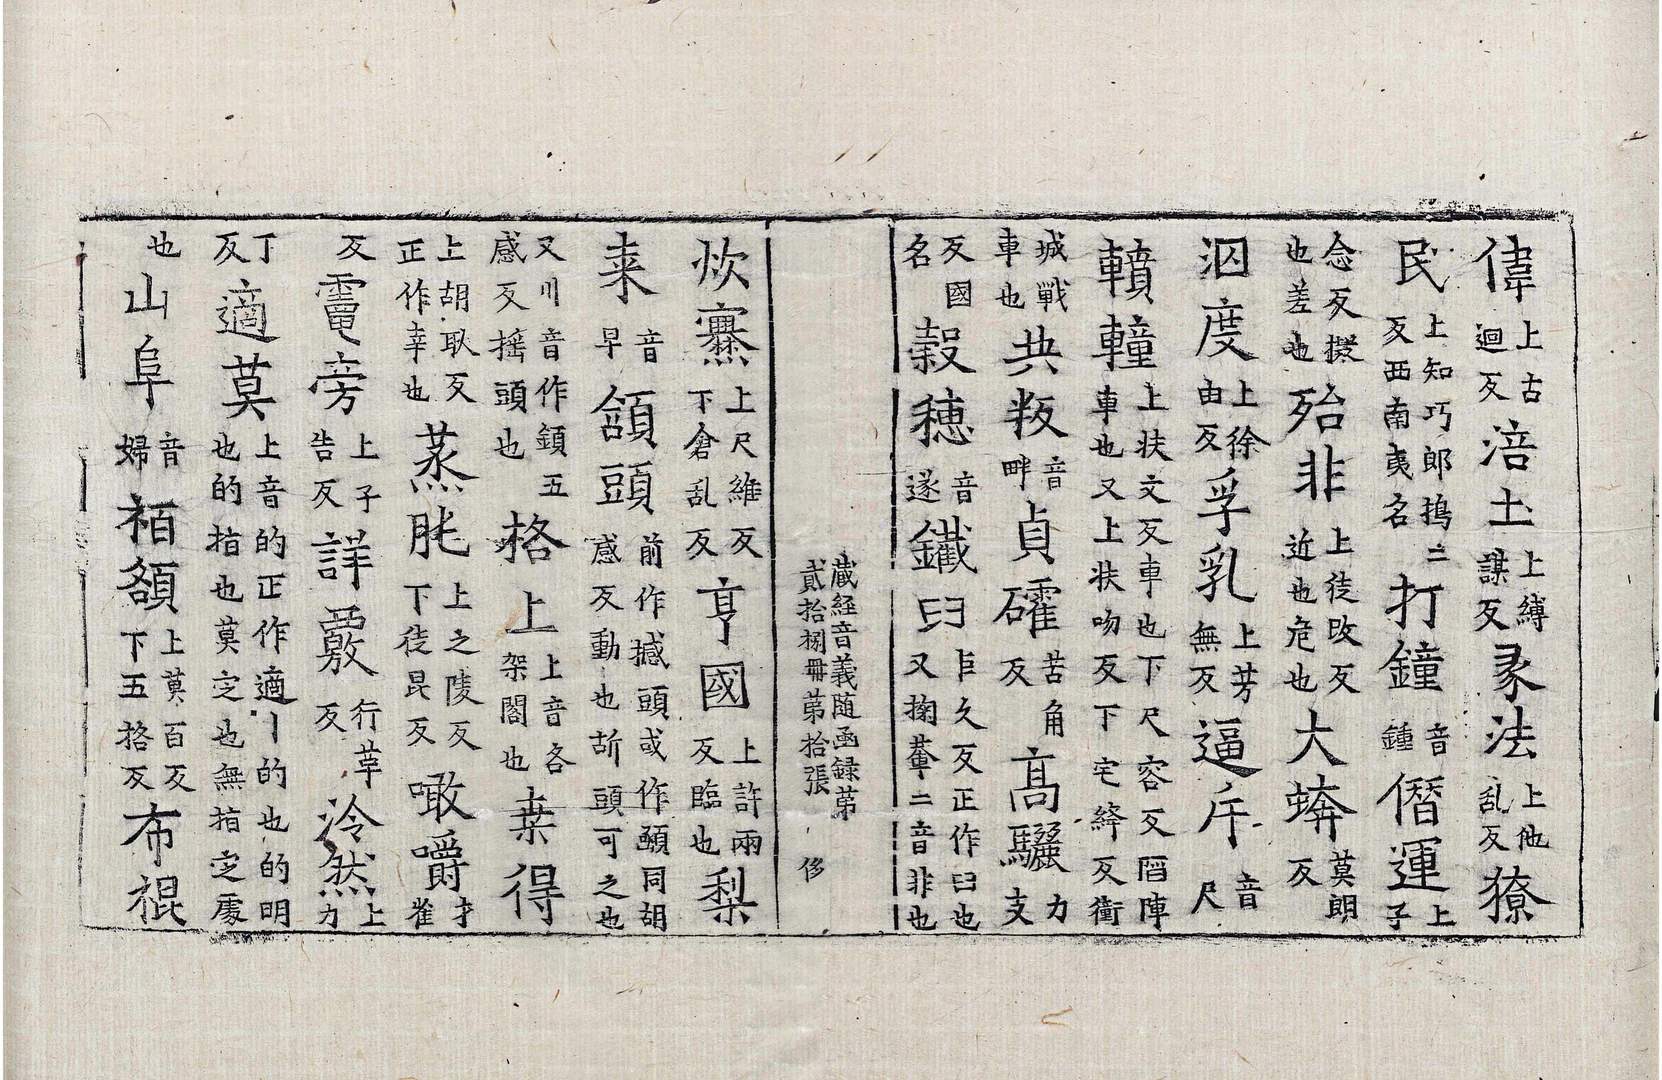 偉上古迴反涪土上縛謀反彖法上他乱反獠
民上知巧郎擣二反西南夷名打鐘音鍾僭運上子
念反擬也差也殆非上徒改反近也危也大蟒莫朗反
泅度上徐由反孚乳上芳無反逼斥音尺
轒䡴上扶文反車也下尺容反陣車也又上扶吻反下宅絳反衝
城戰車也共叛音畔貞礭苦角反高驪力支
反國名穀穗音遂鐵臼巨久反正作臼也又掬轝二音非也
藏経音義随函録第
貳拾捌冊第拾張 侈
炊爨上尺維反下倉乱反享國上許兩反臨也梨
来音早頷頭前作撼頭或作顄同胡感反動也頭可之也
又川音作鎮五感反搖頭也格上上音各架閣也得
上胡耿反正作幸也蒸肫上之陵反下徒昆反噉嚼才雀
反竈旁上子告反詳覈行革反泠然上力
丁反適莫上音的正作適丨的也的明也的指也莫定也無指定處
也山阜音婦袹頟上莫百反下五格反布裩